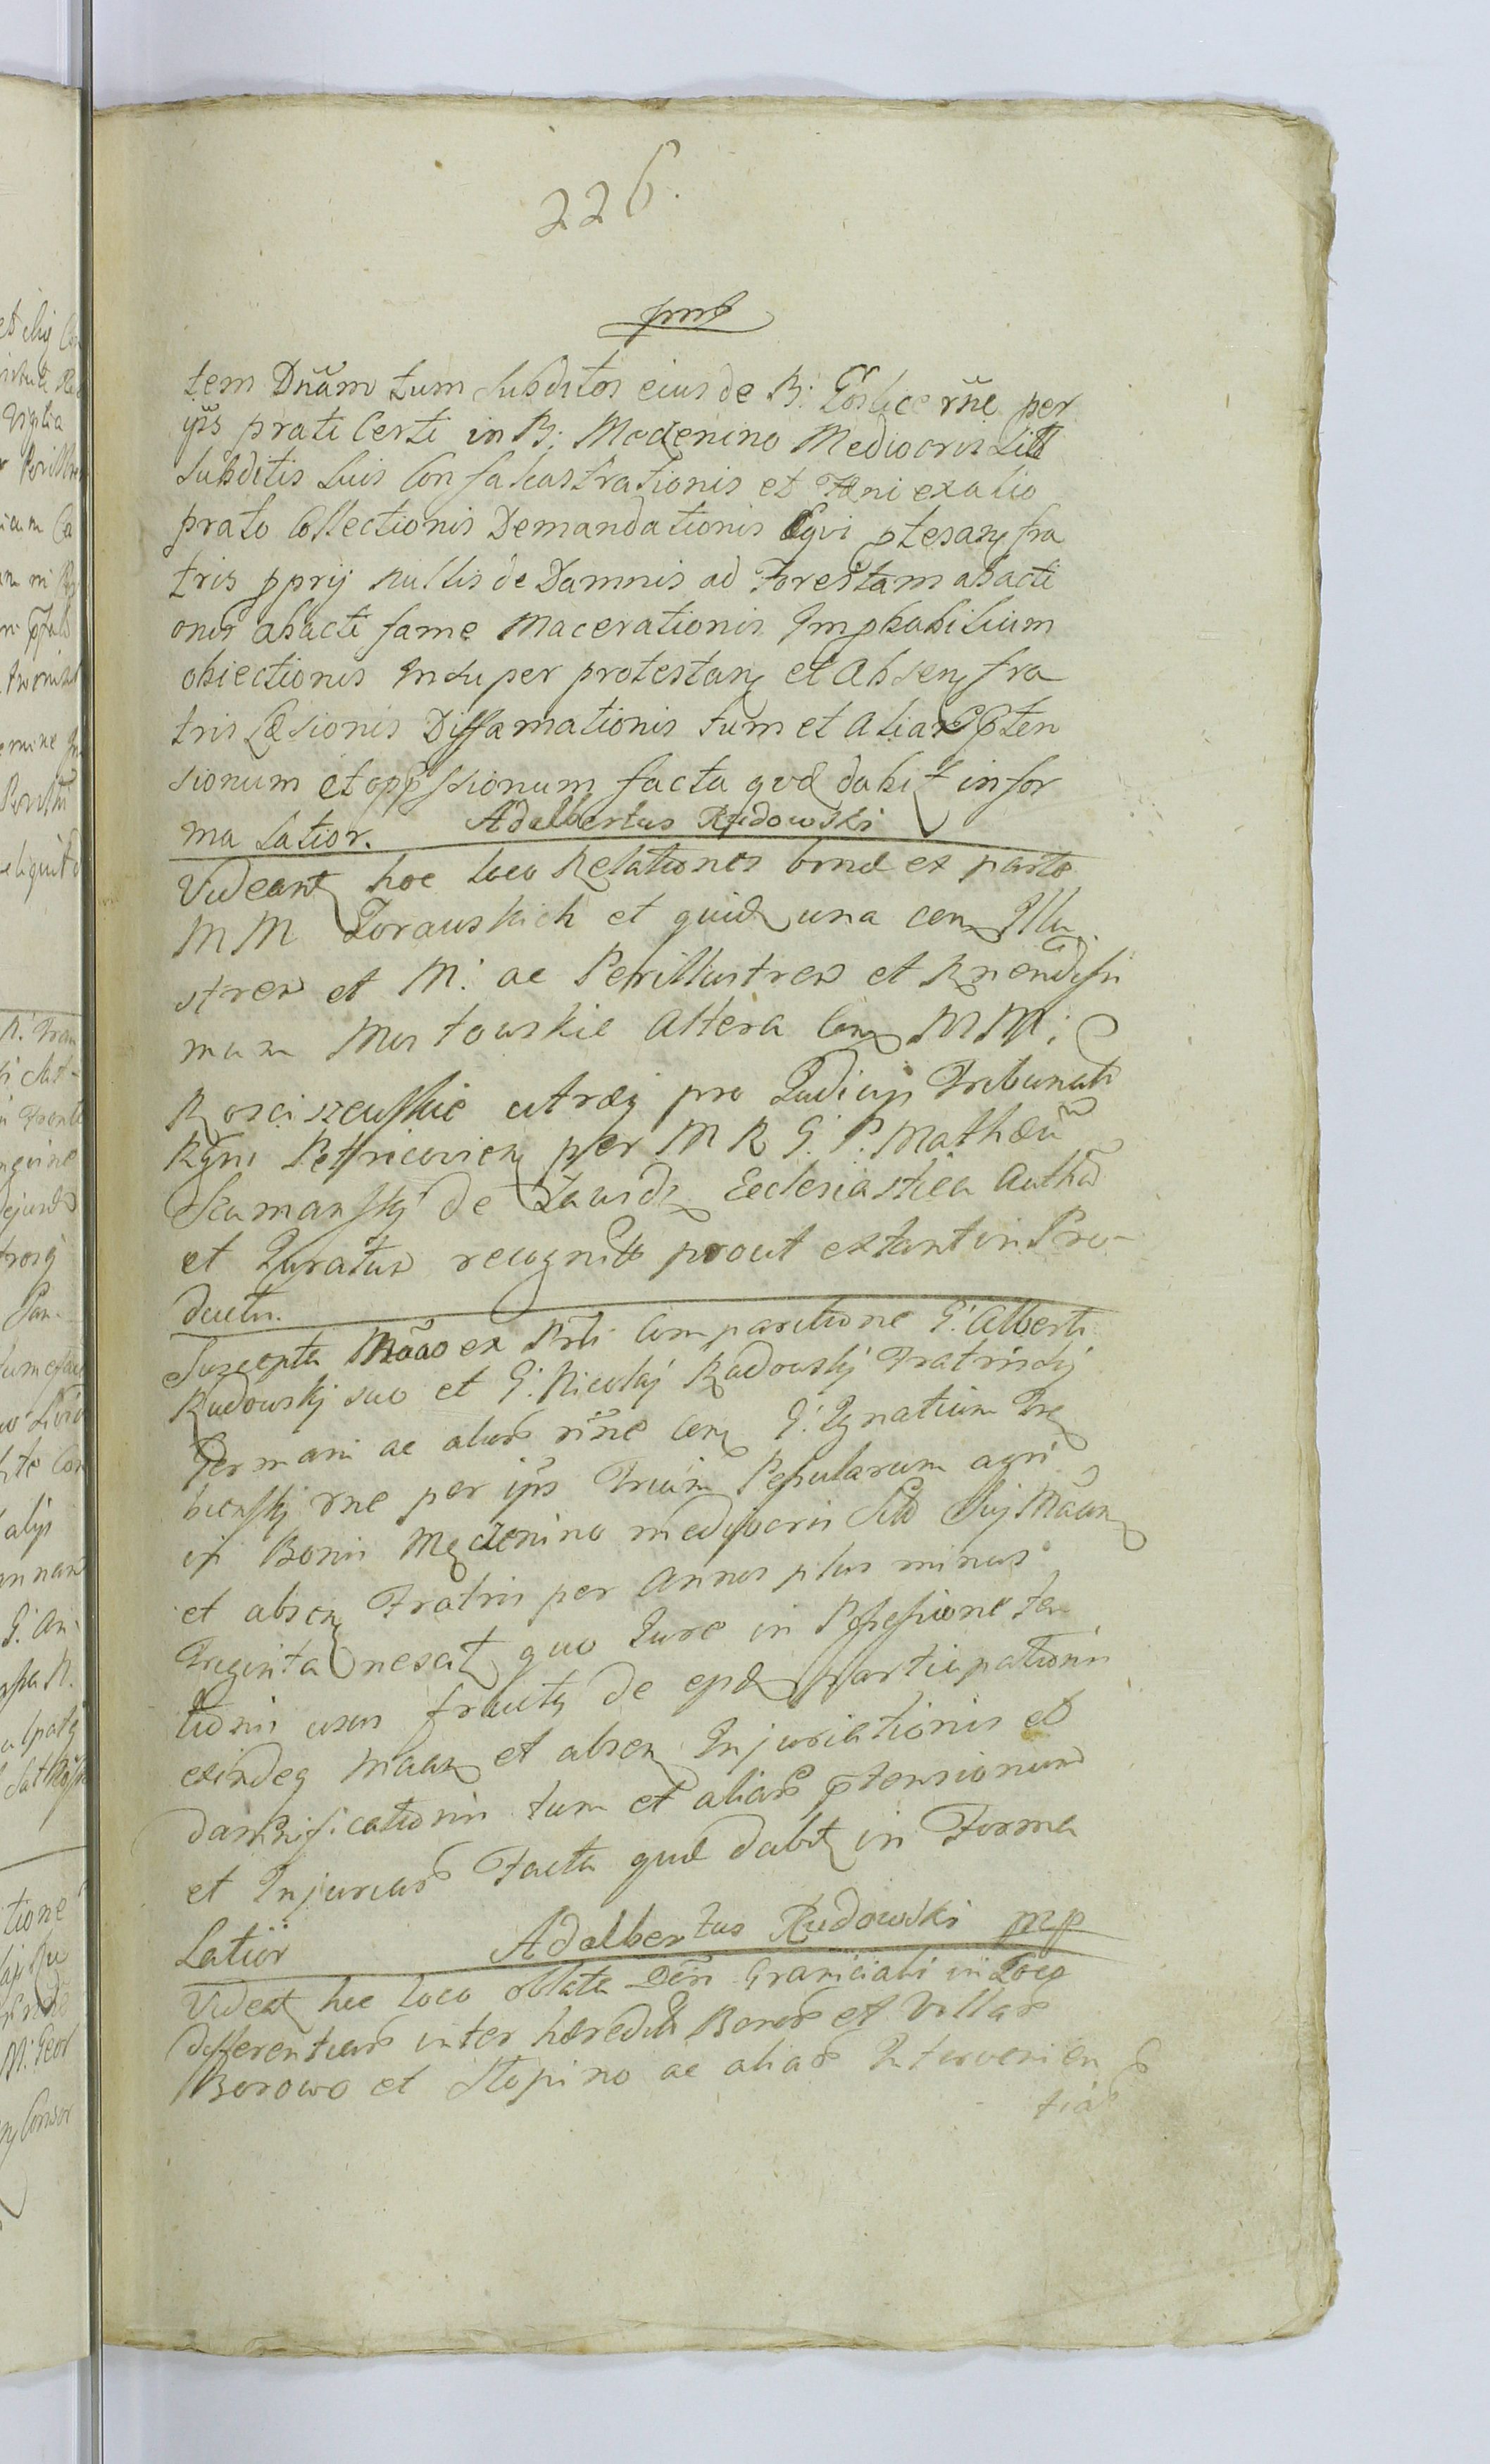 226.
tem Dnãm tum Subditos eius de B: Goslice rñe per
ips prati Certi in B: Modenino Mediocris Sitt
Subditis Suis Confalcastrationis et Fæni ex alio
prato Collectionis Demandationis Eqvi ptesan fra
tris pprij nullis de Damnis ad Forestam abacti
onis abacti fame Macerationis Improbabilium
obiectionis Insuper protestan et Absen fra
tris Læsionis Diffamationis tum et Aliar Ppten
sionum et opp̃ssionum facta qvæ dabit in for
ma Latior. Adalbertus Rudowski
Videant hoc loco Relationes binæ ex parte
MM Zorawskich et quid una con Illu
stres et M: ac Perillustres et Rnendissi
mum Mostowskie altera Con MM:
Kosciszewskie utræq pro Judicijs Tribunali
Rgni Petricovien per M R G: P: Mathæũ
Szumanskj de Zawids Ecclesiastica Autha
et Juratus recognitæ prout extant in Pro-
ductu.
Suscepta Mãao ex Prti Comparitione G: Alberti
Rudowskj suo et G: Nicolaj Rudowskj Fratris sj
Germani ac alior nñe Con G: Ignatium Trę
bienskj rne per ips Trium Petularum agri
in Bonis Modenino mediocris Sitt Suj Mãan
et absen Fratris per Annos plus minus
Triginta nescit quo Jure in Possessione ten
tionis usus fructq de epd participationis
exindeq Maan et absen Injuriationis et
damnificationis tum et aliar ptensionum
et Injuriar Facta quæ dabit in Forma
Latiör Adalbertus Rudowski mp
Videat hic loco oblata Dẽri Graniciali in Loco
differentiar inter hæredit Bonor et Villar
Borowo et Stopino ac aliar Intervenien
tiar